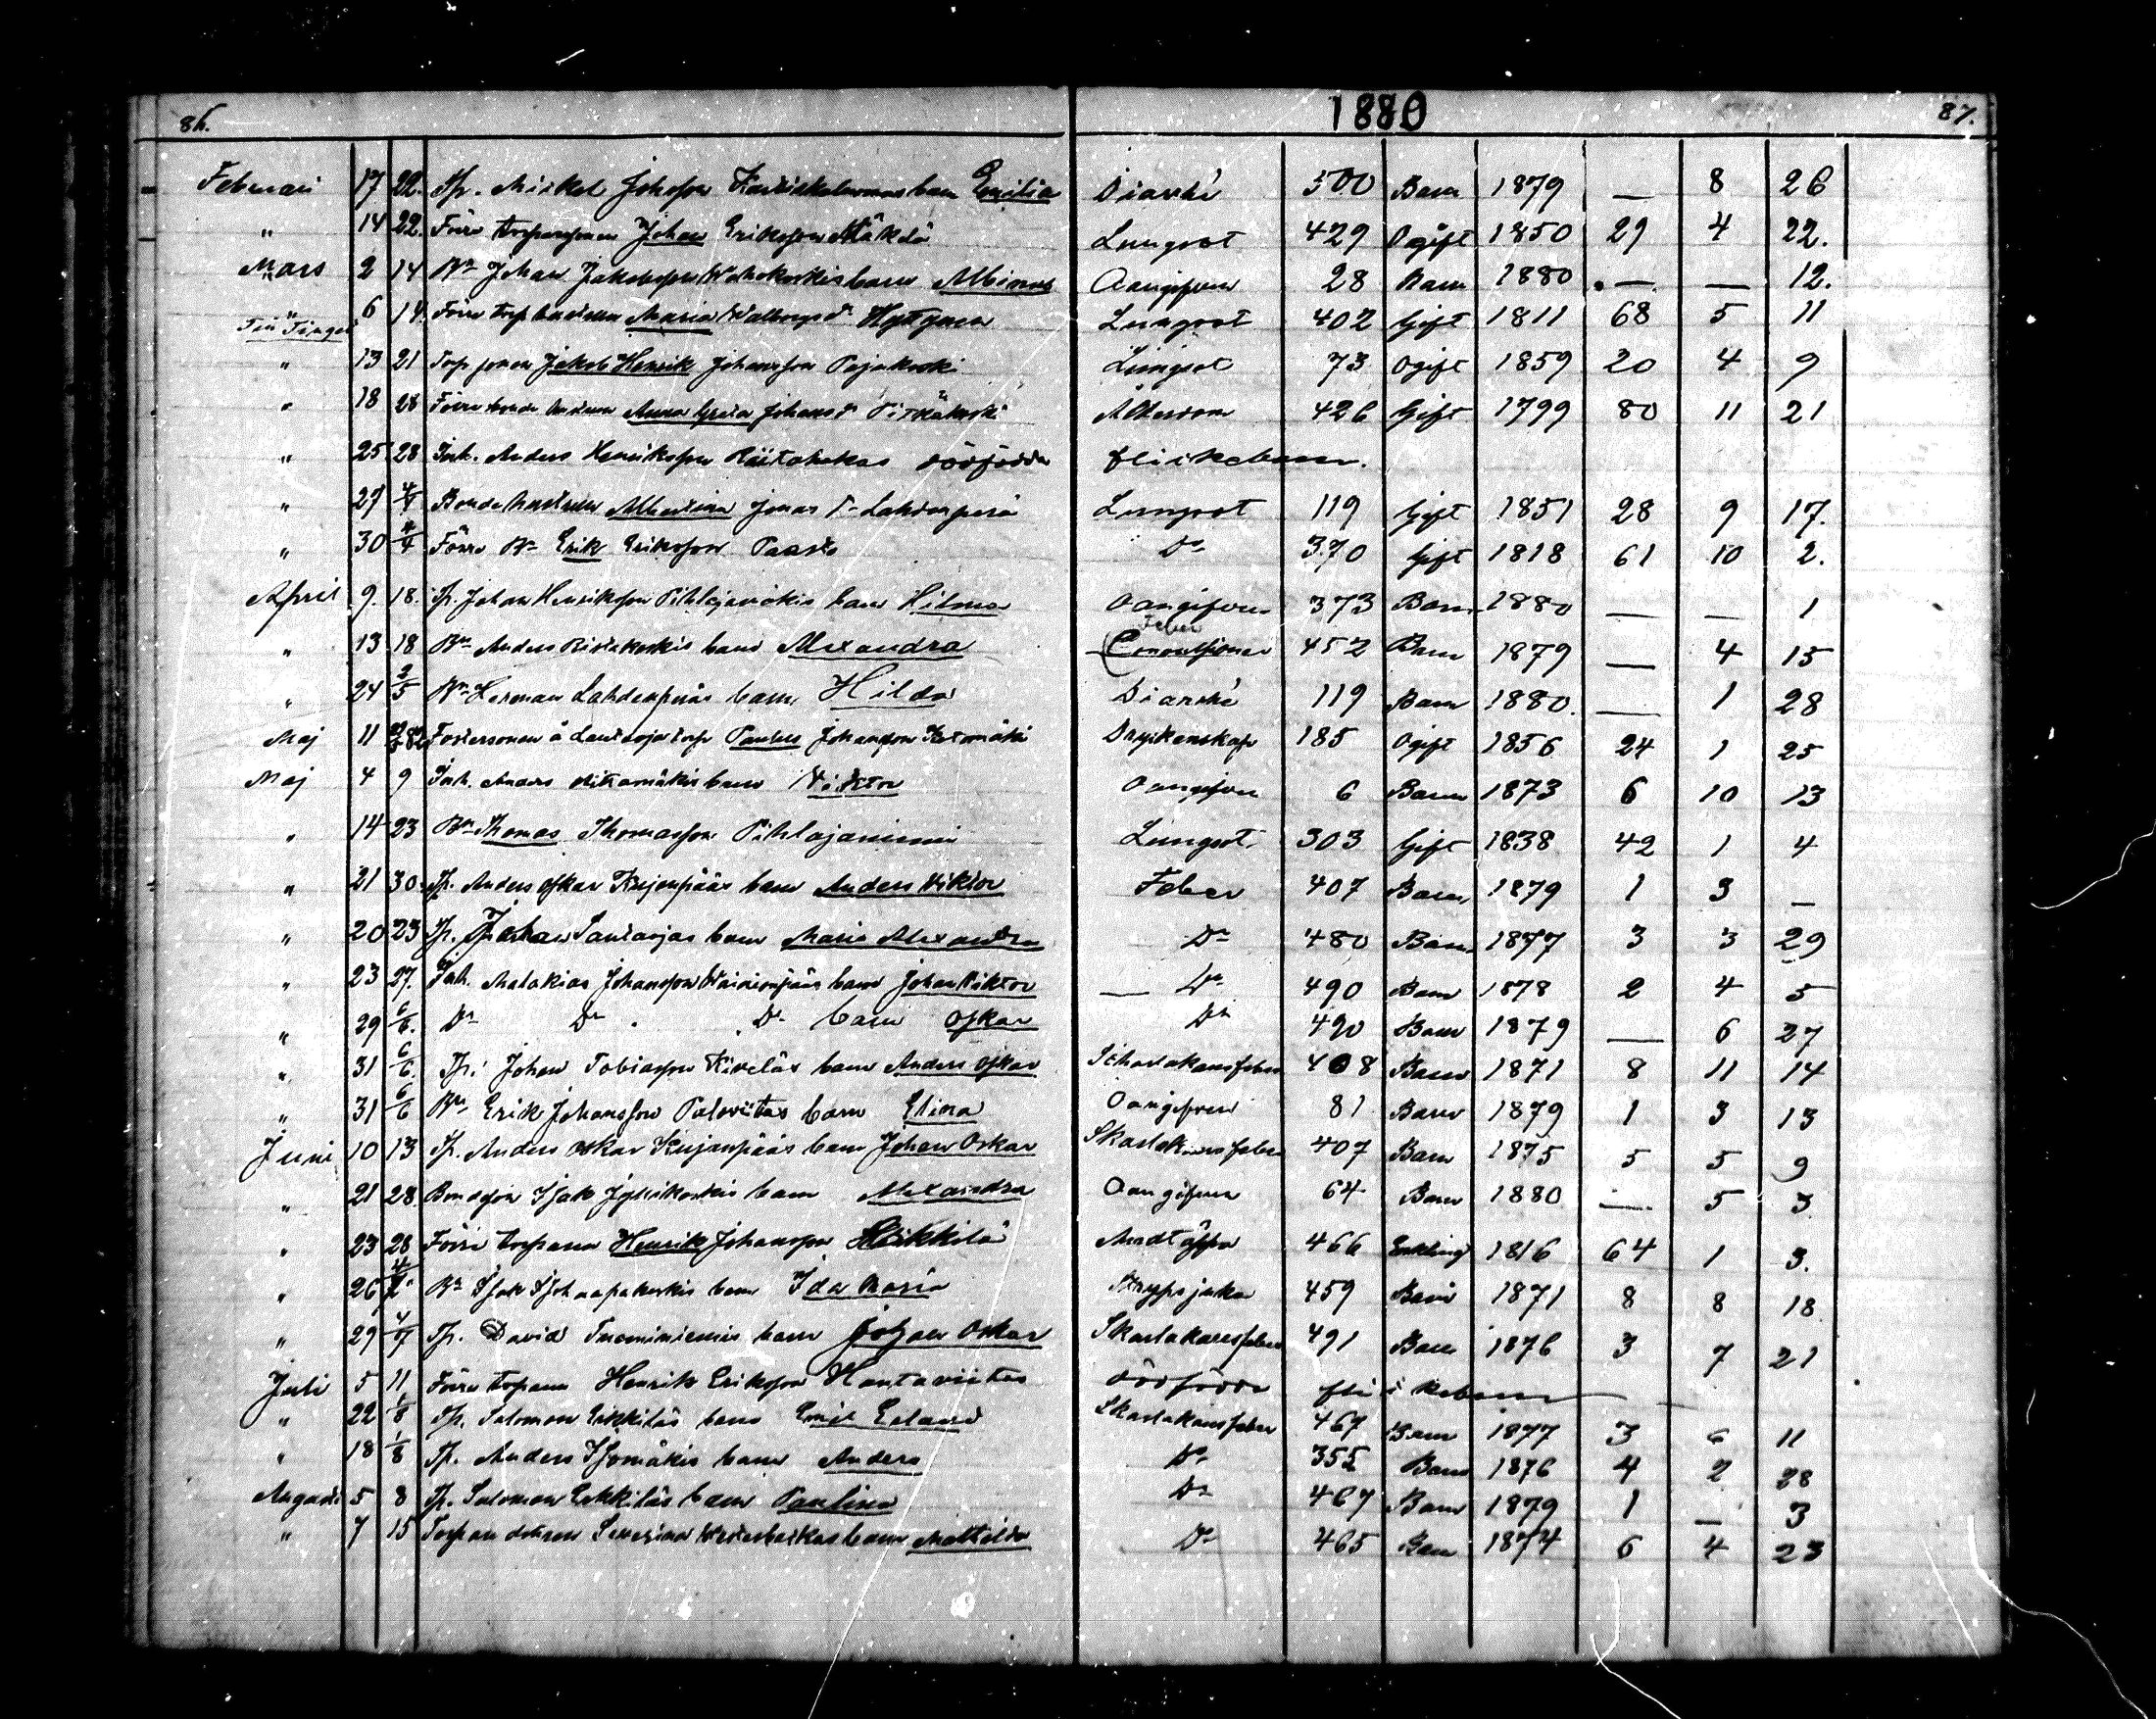 86.
1880
87.
Februari 17 22. Tp. Mickel Johsson barn Emilia Diarrhé 500 Barn 1879 — 8 26
" 14 22. Förre torpareson Johan Eriksson Mäkelä Lungsot 429 Ogift 1850 29 4 22.
Mars 2 14 Bn Johan Jakobsson barn Albinus Oangifven 28 Barn 1880 — — 12.
6 14. Förre torp hustrun Maria Hytynen Lungsot 402 Gift 1811 68 5 11
" 13 21 Torp sonen Jakob Henrik Johansson Pajukoski Lungsot 73 Ogift 1859 20 4 9
" 18 28 Förre bonde hustrun Anna Greta Johansdr Pitkäkoski Ålderdom 426 Gift 1799 80 11 21
" 25 28 Inh. Anders Henriksson Riitahakas dödfödda flickebarn.
" 27 4/4 Bonde hustrun Albertina Jonas dr Lahdenperä Lungsot 119 Gift 1851 28 9 17.
" 30 4/4 Förre Bn Erik Eriksson Paasto Do 370 Gift 1818 61 10 2.
April 9. 18. Tp. Johan Henriksson Pihlajamäkis barn Hilma Oangifven 373 Barn 1880 — — 1
" 13 18 Bn Anders barn Alexandra Feber 452 Barn 1879 — 4 15
" 24 2/5 Bn Herman Lahdenperäs barn Hilda Diarrhé 119 Barn 1880. — 1 28
Maj 11 Fostersonen å torp Paulus Johansson Dryckenskap 185 Ogift 1856 24 1 25
Maj 4 9 Inh. Anders barn Viktor Oangifven 6 Barn 1873 6 10 13
" 14 23 Bn Thomas Thomasson Pihlajaniemi Lungsot. 303 Gift 1838 42 1 4
" 21 30. Tp. Anders Oskar Kujanpääs barn Anders Viktor Feber 407 Barn 1879 1 3 —
" 20 23 Tp. Johan barn Maria Alexandra Do 480 Barn 1877 3 3 29
" 23 27. Inh. Malakias Johansson barn Johan Viktor — Do 490 Barn 1878 2 4 5
" 29 6/6. Do Do Do barn Oskar Do 490 Barn 1879 — 6 27
" 31 6/6. Tp. Johan Tobiasson Kiveläs barn Anders Oskar Scharlakansfeber 408 Barn 1871 8 11 14
" 31 6/6 Bn Erik Johansson Paloviitas barn Elina Oangifven 81 Barn 1879 1 3 13
Juni 10 13 Tp. Anders Oskar Kujanpääs barn Johan Oskar Skarlakansfeber 407 Barn 1875 5 5 9
" 21 28. Bondeson Isak barn Alexandra Oangifven 64 Barn 1880 — 5 3
" 23 28 Förre torparen Henrik Johansson Heikkilä Andtäppa 466 Enkling 1816 64 1 3.
" 26 Bn Isak barn Ida Maria Strypsjuka 459 Barn 1871 8 8 18
" 29 4/7 Tp. David Tuominiemis barn Johan Oskar Skarlakansfeber 491 Barn 1876 3 7 21
Juli 5 11 Förre torparen Henrik Eriksson Hautaviitas dödfödda flickebarn
" 22 1/8 Tp. Salomon Erkkiläs barn Emil Skarlakansfeber 467 Barn 1877 3 6 11
" 18 1/8 Tp. Anders Isomäkis barn Anders Do 355 Barn 1876 4 2 28
Augusti 5 8 Tp. Salomon Erkkiläs barn Paulina Do 467 Barn 1879 1 — 3
" 7 15 barn Mathilda Do 465 Barn 1874 6 4 23